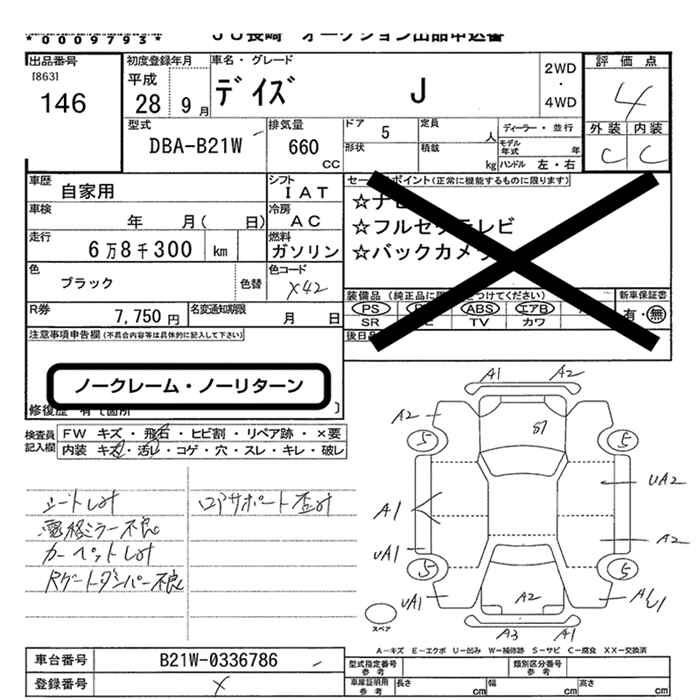 *0009793*
JU長崎 オークション出品申込書
出品番号
[863]
146
初度登録年月
平成
28 9月
車名・グレード
デイズ J
2WD
・
4WD
評価点
4
外装 内装
C C
型式
DBA-B21W
排気量
660
CC
ドア 5
形状
定員 人
積載 kg
ディーラー・並行
モデル年式 年
ハンドル 左・右
車歴
自家用
シフト
IAT
車検
年 月( 日)
冷房
AC
走行
6万8千300 km
燃料
ガソリン
色
ブラック
色替
色コード
X42
R券
7,750円
名変通知期限
月 日
セールスポイント(正常に機能するものに限ります)
☆ナビ
☆フルセグテレビ
☆バックカメラ
装備品 (純正品に限り○をつけてください)
PS ABS エアB
SR TV カワ
新車保証書
有・無
後日品
注意事項申告欄(不具合内容等は具体的に記入して下さい)
ノークレーム・ノーリターン
修復歴 有て箇所 〕
検査員
記入欄
FW キズ・飛石・ヒビ割・リペア跡・×要
内装 キズ・汚れ・コゲ・穴・スレ・キレ・破レ
シートしみ
電格ミラー不良
カーペットしみ
Rゲートダンパー不良
ロアサポート歪み
A1 A2
A2
S7
5 5
A1
UA2
A2
UA1
5 5
UA1
A2
A3 A1
スペア
A－キズ E－エクボ U－凹み W－補修跡 S－サビ C－腐食 XX－交換済
車台番号
B21W-0336786
登録番号
×
型式指定番号
参考
類別区分番号
参考
車庫証明用
参考
長さ cm
幅 cm
高さ cm